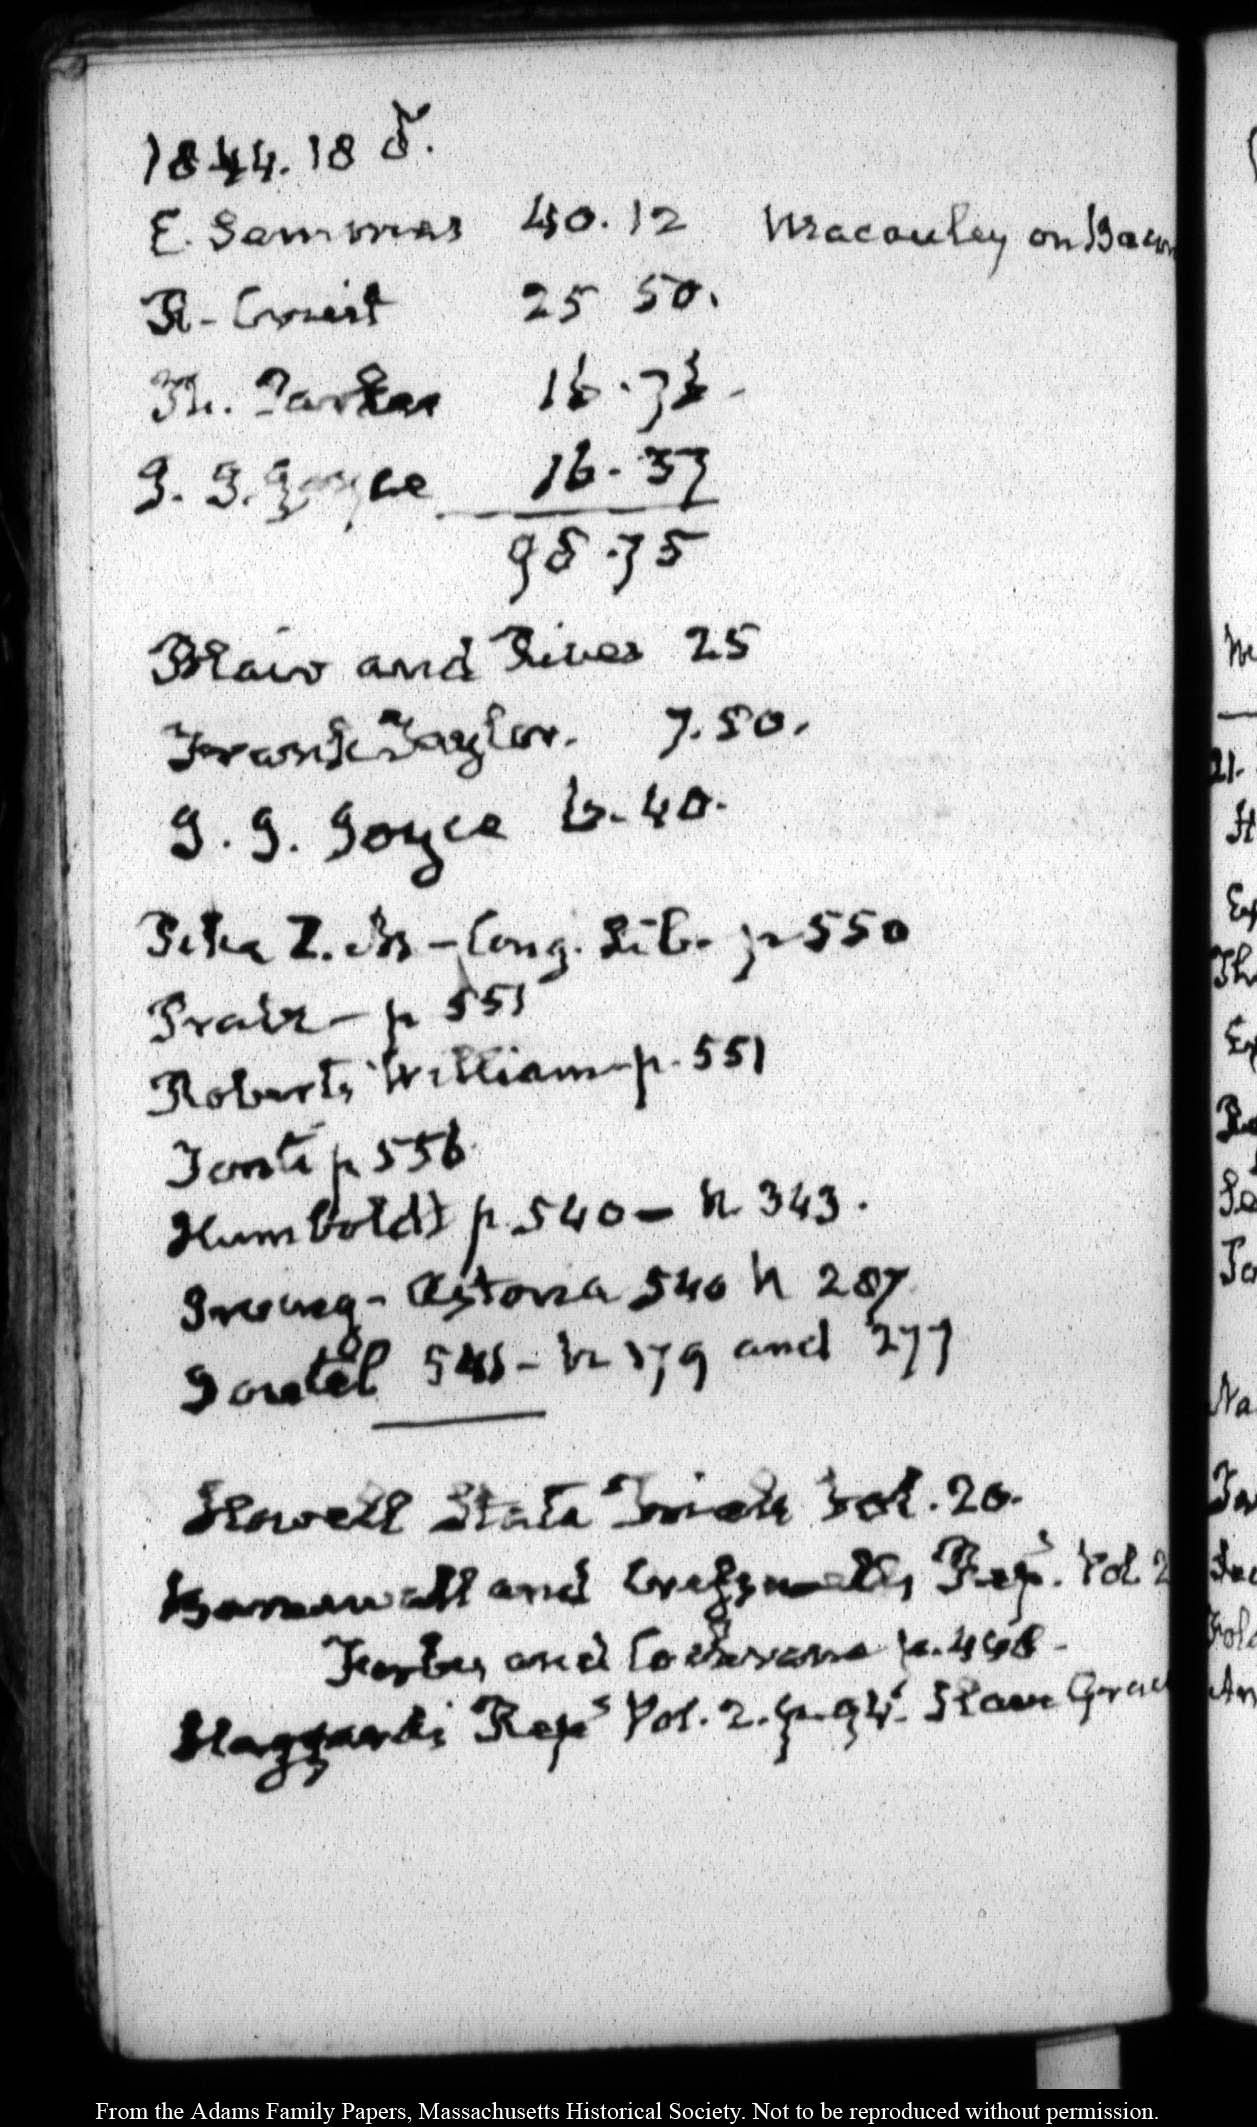 1844. 18 5.
E. Semmes 40.12 Macauley on Bacon
R- Cruit 25 50.
Th. Parker 16.73.
J. J. Joyce 16.37
98.75
Blair and Rives 25
Frank Taylor. 7.50.
J. J. Joyce 6.40.
Pike Z. M - Cong. Lib. p 550
Pratz - p 551
Roberts, William p. 551
Tonti p 556
Humboldt p. 540 - n 343.
Irving - Astoria 540 n 287
Joutel 541 - n 179 and 277
Howell State Trials Vol. 20.
Barnewall and Cresswell's Rep.s Vol 2
Forbes and Cochrane p. 448 -
Haggard's Rep.s Vol. 2. p. 94. Slave Grace
From the Adams Family Papers, Massachusetts Historical Society. Not to be reproduced without permission.